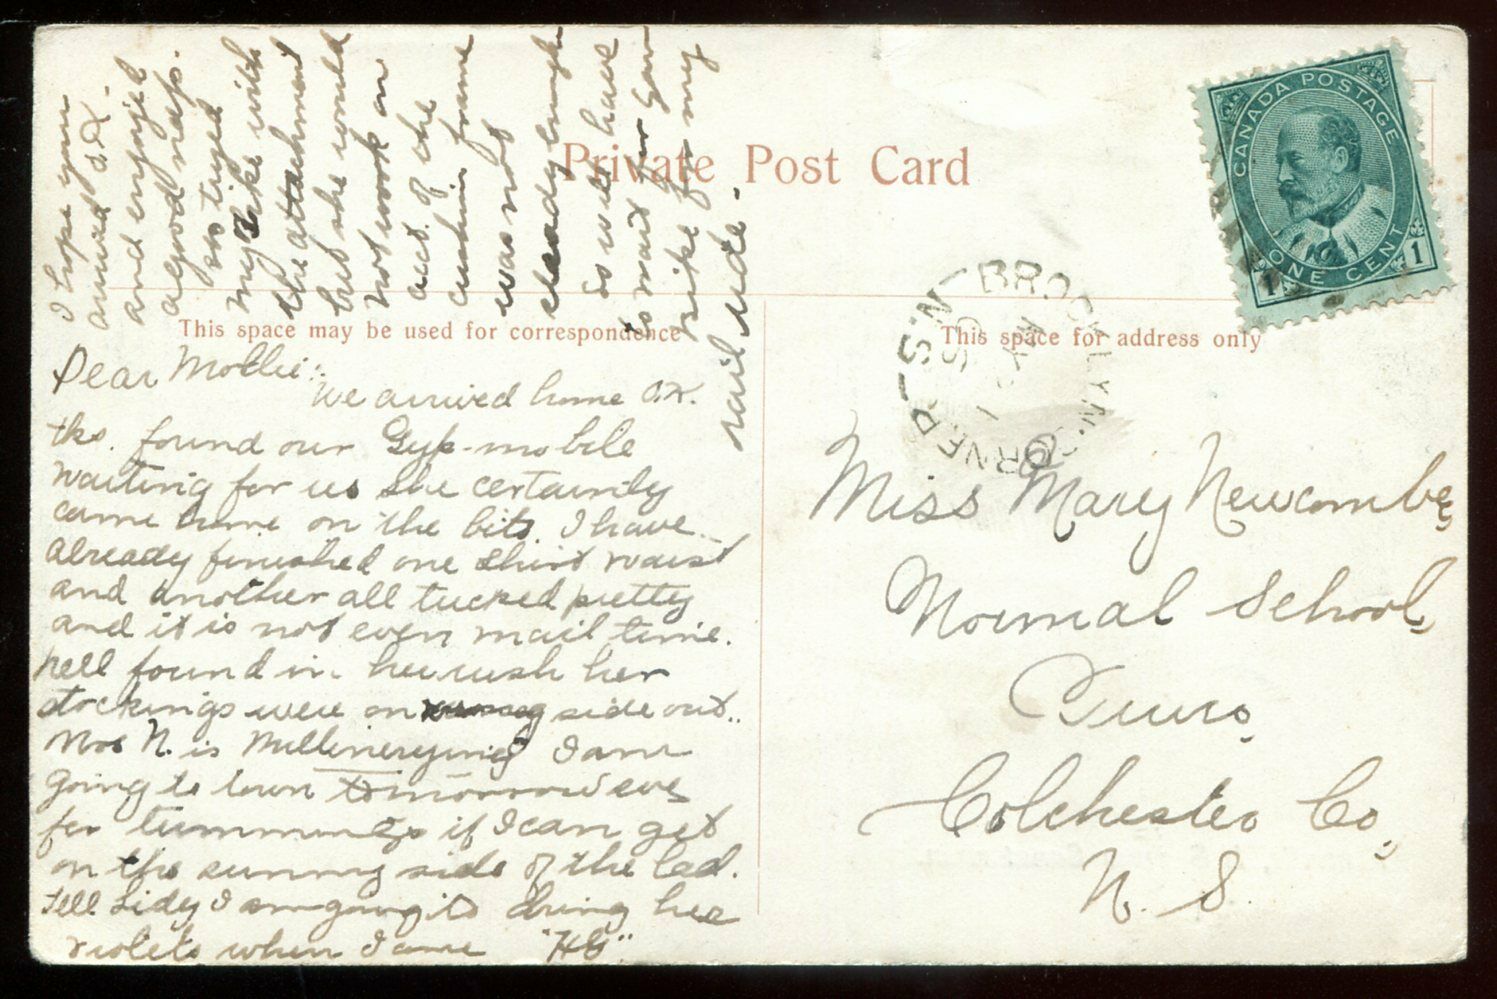 Private Post Card
This space may be used for correspondence
This space for address only
CANADA POSTAGE
ONE CENT
1 1
BROOKLYN CORNER N.S.
MY
Miss Mary Newcombe,
Normal School,
Truro,
Colchester Co,
N. S.
Dear Mollie:
We arrived home O.K.
tks. found our Gyp-mobile
waiting for us She certainly
came home on the bits. I have
already finished one shirt waist
and another all tucked pretty
and it is not even mail time.
Nell found in her rush her
stockings were on side out..
Mrs N. is Millinerying I am
going to town tomorrow eve
for trimmings if I can get
on the sunny side of the lad.
Tell Lidy I am going to bring her
violets when I come "HG"
I hope you
arrived O.K.
and enjoyed
a good nap.
so tired
my with
the attachment
but she would
not work on
acct. of the
cushion frame
was not
enough
So will have
to wait for
for my
rail ride.